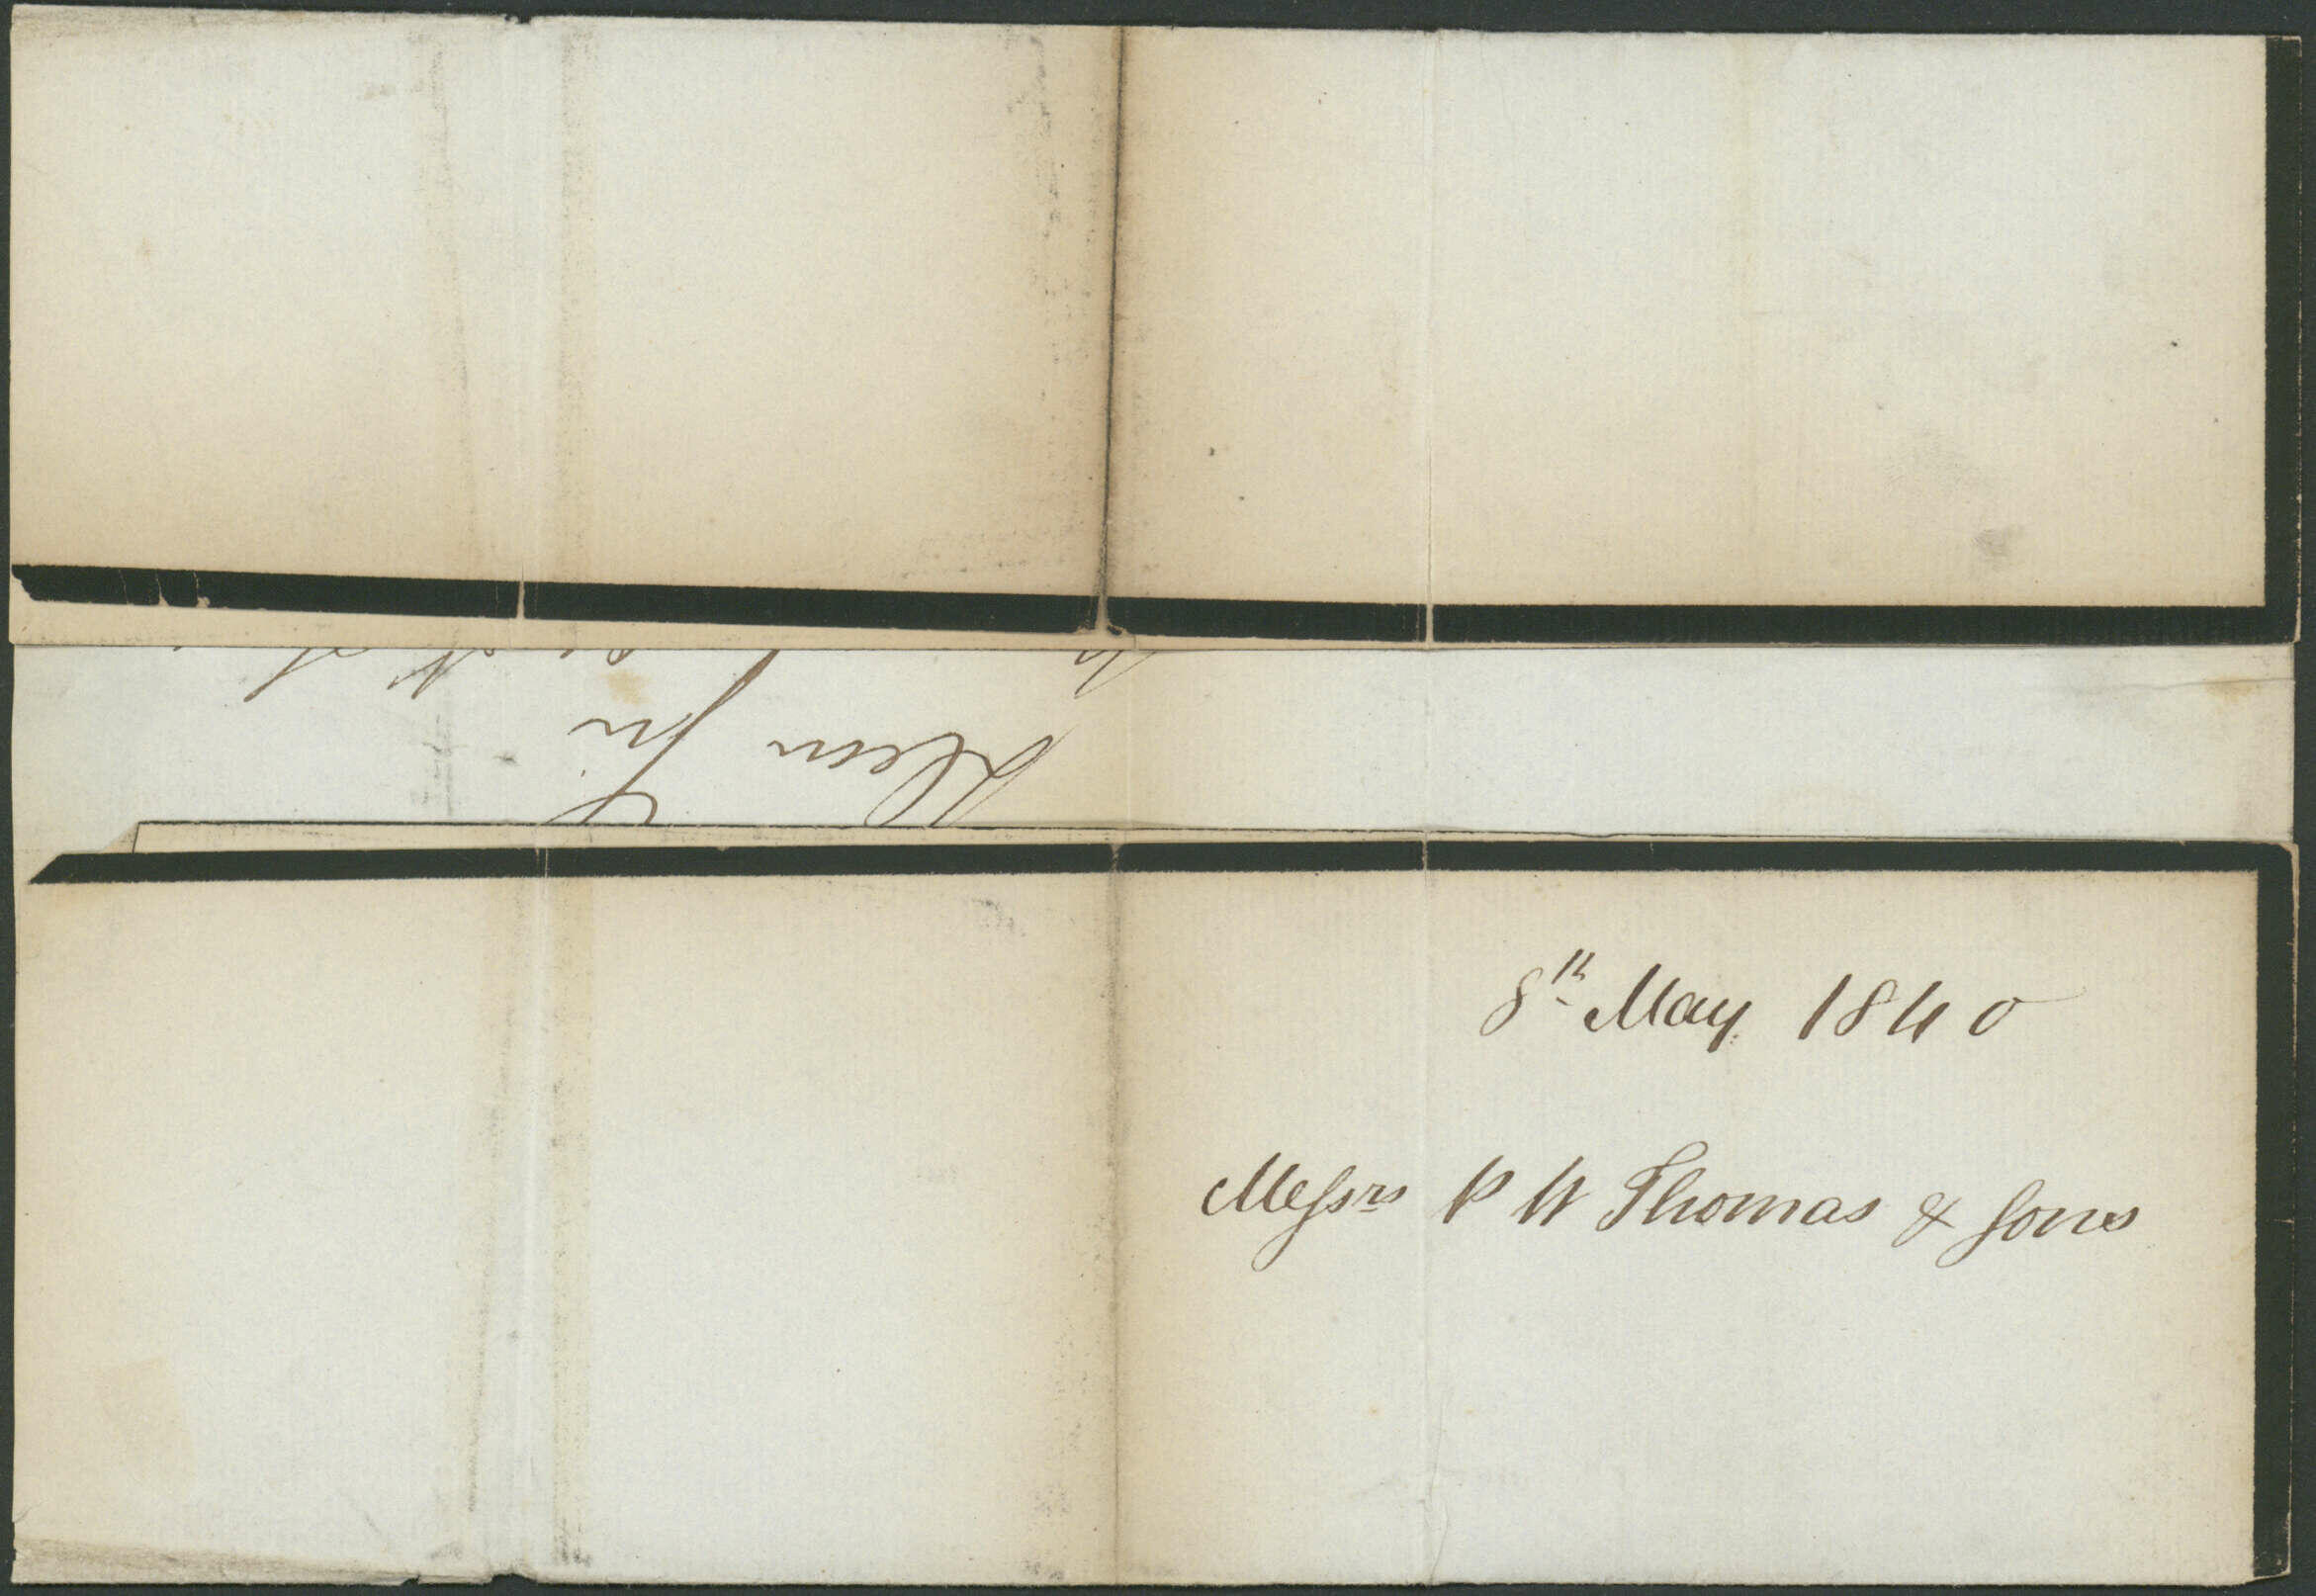 Dear Sir
8th May 1840
Messrs P W Thomas & Sons